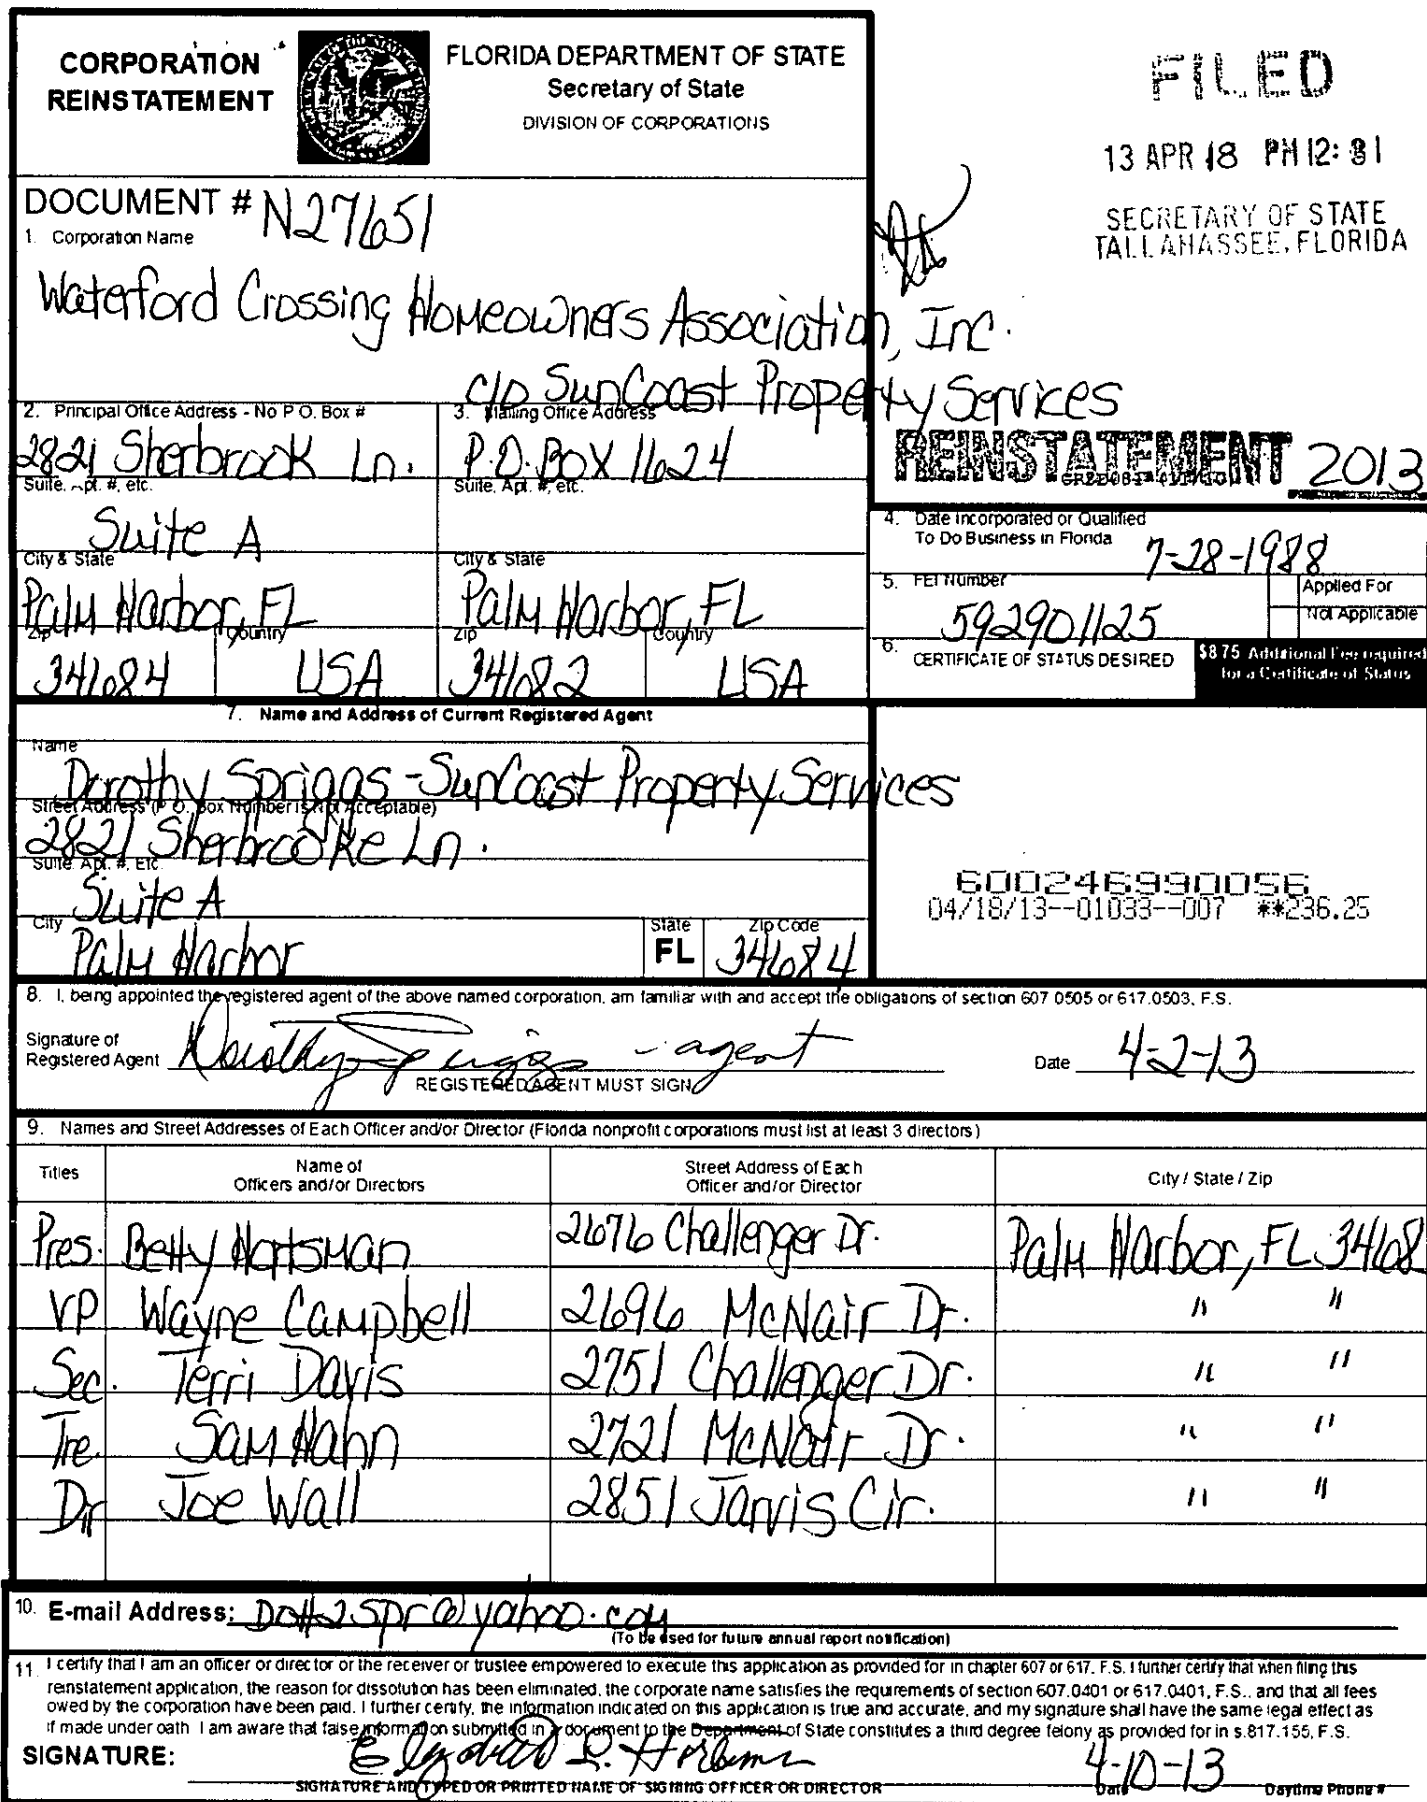 CORPORATION
REINSTATEMENT
FLORIDA DEPARTMENT OF STATE
Secretary of State
DIVISION OF CORPORATIONS
FILED
13 APR 18 PM 12:
SECRETARY OF STATE
TALLAHASSEE, FLORIDA
DOCUMENT # N27651
1. Corporation Name
Waterford Crossing Homeowners Association, Inc.
c/o SunCoast Property Services
2. Principal Office Address - No P O. Box #
2821 Sherbrook Ln.
Suite. Apt. #, etc.
Suite A
City & State
Palm Harbor, FL
Zip Country
34684 USA
3. Mailing Office Address
P.O. Box 11624
Suite, Apt. #, etc.
City & State
Palm Harbor, FL
Zip Country
34682 USA
REINSTATEMENT 2013
4. Date Incorporated or Qualified
To Do Business in Florida 7-28-1988
5. FEI Number
592901125
Applied For
Not Applicable
6. CERTIFICATE OF STATUS DESIRED
$8.75 Additional Fee required
for a Certificate of Status
7. Name and Address of Current Registered Agent
Name
Dorothy Spriggs - SunCoast Property Services
Street Address (P. O. Box Number is Not Acceptable)
2821 Sherbrooke Ln.
Suite. Apt. #, Etc
Suite A
City State Zip Code
Palm Harbor FL 34684
600246990056
04/18/13--01033--007 **236.25
8. I, being appointed the registered agent of the above named corporation, am familiar with and accept the obligations of section 607 0505 or 617.0503, F.S.
Signature of
Registered Agent Dorothy Spriggs - agent
REGISTERED AGENT MUST SIGN
Date 4-2-13
9. Names and Street Addresses of Each Officer and/or Director (Florida nonprofit corporations must list at least 3 directors)
Titles Name of Officers and/or Directors Street Address of Each Officer and/or Director City / State / Zip
Pres. Betty Hartsman 2676 Challenger Dr. Palm Harbor, FL 3468
VP Wayne Campbell 2696 McNair Dr. " "
Sec. Terri Davis 2751 Challenger Dr. " "
Tre. Sam Hahn 2721 McNair Dr. " "
Dir Joe Wall 2851 Jarvis Cir. " "
10. E-mail Address: Dott2spr@yahoo.com
(To be used for future annual report notification)
11. I certify that I am an officer or director or the receiver or trustee empowered to execute this application as provided for in chapter 607 or 617. F.S. I further certify that when filing this
reinstatement application, the reason for dissolution has been eliminated, the corporate name satisfies the requirements of section 607.0401 or 617.0401, F.S., and that all fees
owed by the corporation have been paid. I further certify, the information indicated on this application is true and accurate, and my signature shall have the same legal effect as
if made under oath I am aware that false information submitted in a document to the Department of State constitutes a third degree felony as provided for in s.817.155, F.S.
SIGNATURE: 4-10-13
SIGNATURE AND TYPED OR PRINTED NAME OF SIGNING OFFICER OR DIRECTOR Date Daytime Phone #